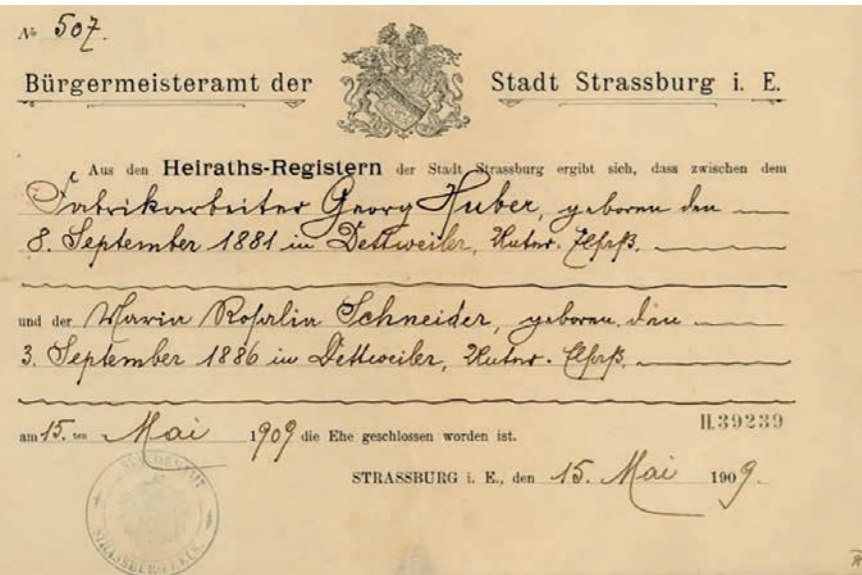 No 507.
Bürgermeisteramt der Stadt Strassburg i. E.
Aus den Heiraths-Registern der Stadt Strassburg ergibt sich, dass zwischen dem
Fabrikarbeiter Georg Huber, geboren den
8. September 1881 in Dettweiler, Unter-Elsaß.
und der Maria Rosalia Schneider, geboren den
3. September 1886 in Dettweiler, Unter-Elsaß.
am 15. ten Mai 1909 die Ehe geschlossen worden ist.
II.39239
STRASSBURG i. E., den 15. Mai 1909.
STANDESAMT
STRASSBURG i. ELS.